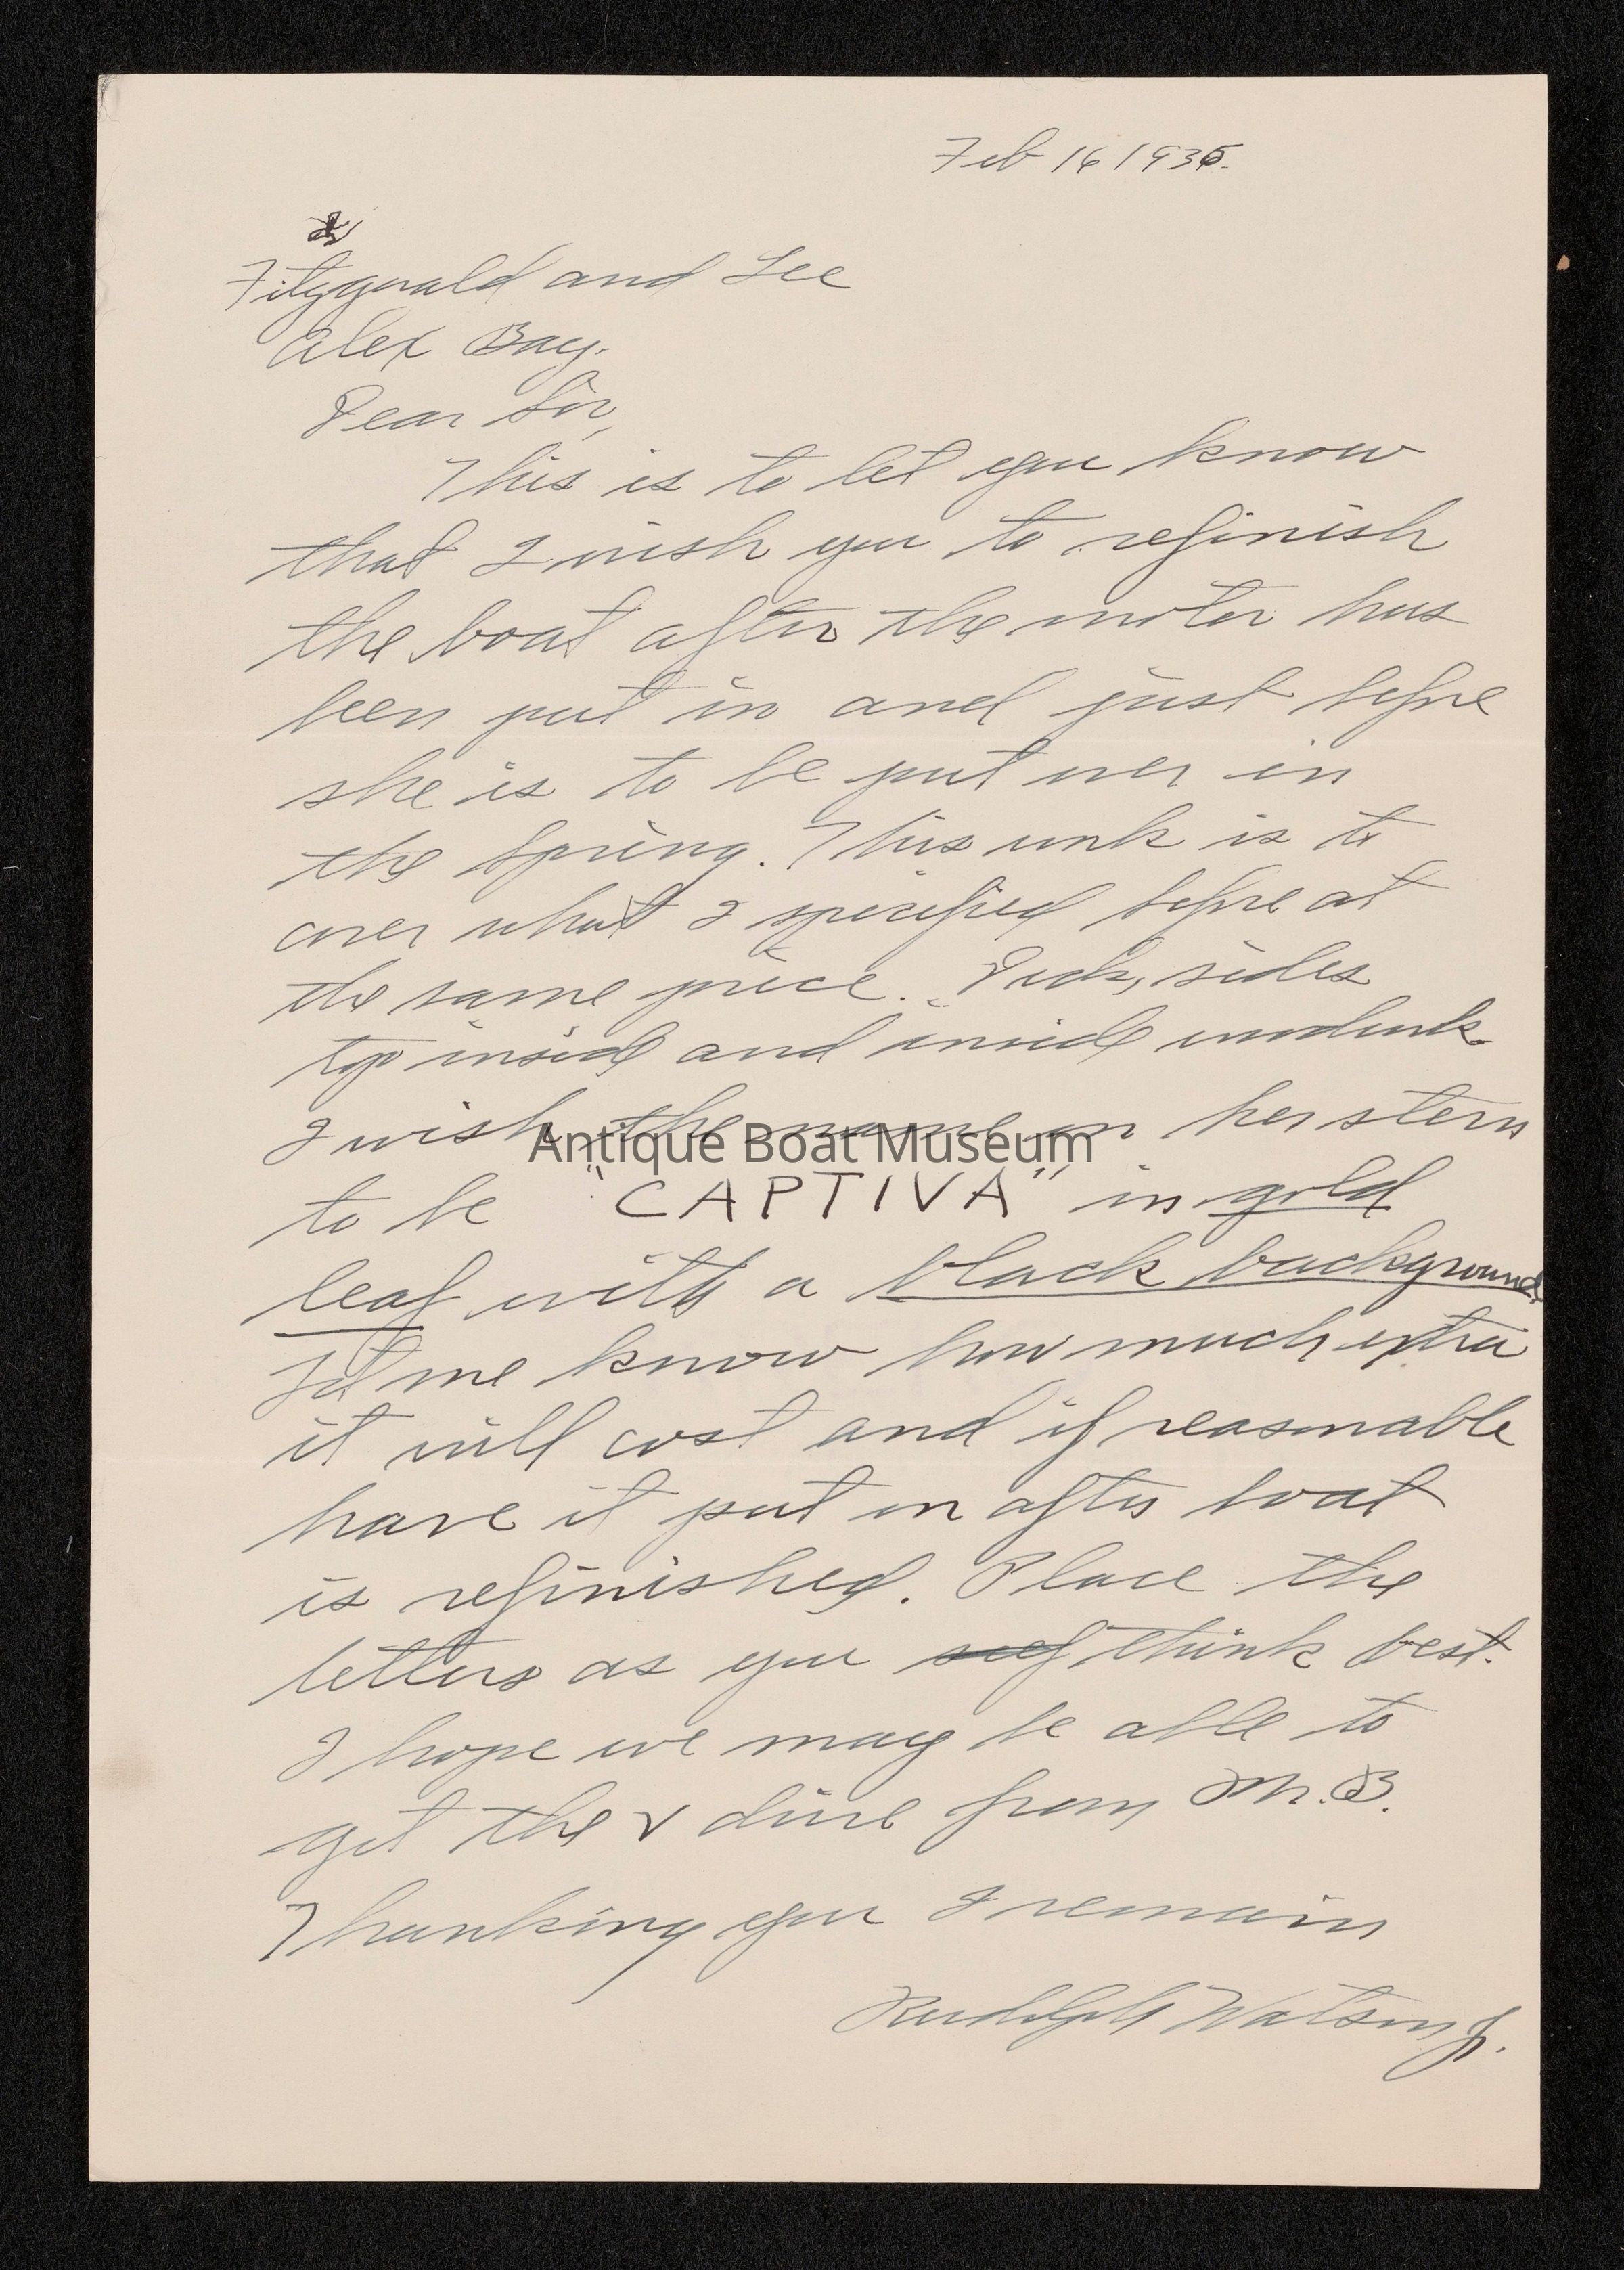 Feb 16 1935.
Fitzgerald and Lee
Alex Bay.
Dear Sir,
This is to let you know
that I wish you to refinish
the boat after the motor has
been put in and just before
she is to be put over in
the Spring. This work is to
cover what I specified before at
the same price. Deck, sides
top inside and inside woodwork.
I wish the name on her stern
Antique Boat Museum
to be "CAPTIVA" in gold
leaf with a black background.
Let me know how much extra
it will cost and if reasonable
have it put on after boat
is refinished. Place the
letters as you see think best.
I hope we may be able to
get the V drive from M.B.
Thanking you I remain
Rudolph Watson Jr.